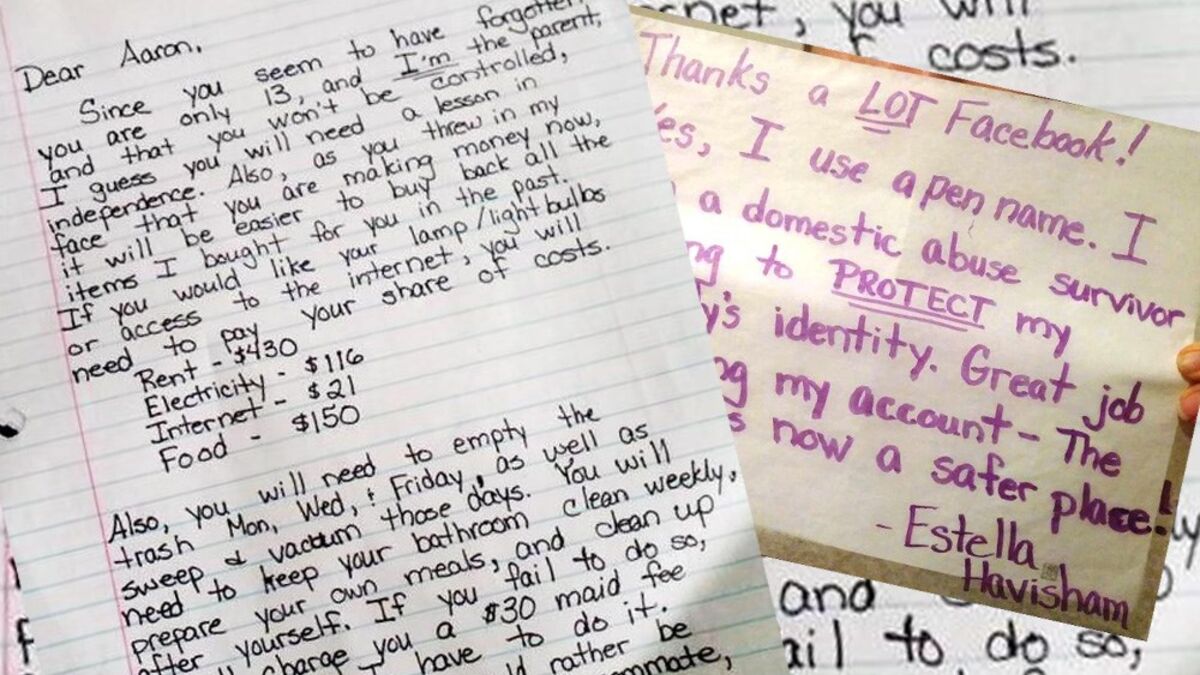 Dear Aaron,
Since you seem to have forgotten
you are only 13, and I'm the parent,
and that you won't be controlled,
I guess you will need a lesson in
independence. Also, as you threw in my
face that you are making money now,
it will be easier to buy back all the
items I bought for you in the past.
If you would like your lamp/lightbulbs
or access to the internet, you will
need to pay your share of costs.
Rent - $430
Electricity - $116
Internet - $21
Food - $150
Also, you will need to empty the
trash Mon, Wed, & Friday, as well as
sweep & vacuum those days. You will
need to keep your bathroom clean weekly,
prepare your own meals, and clean up
after yourself. If you fail to do so,
charge you a $30 maid fee
have to do it.
rather be
Thanks a LOT Facebook!
I use a pen name. I
a domestic abuse survivor
to PROTECT my
identity. Great job
my account - The
now a safer place!
- Estella
Havisham
you will
costs.
and
to do so,